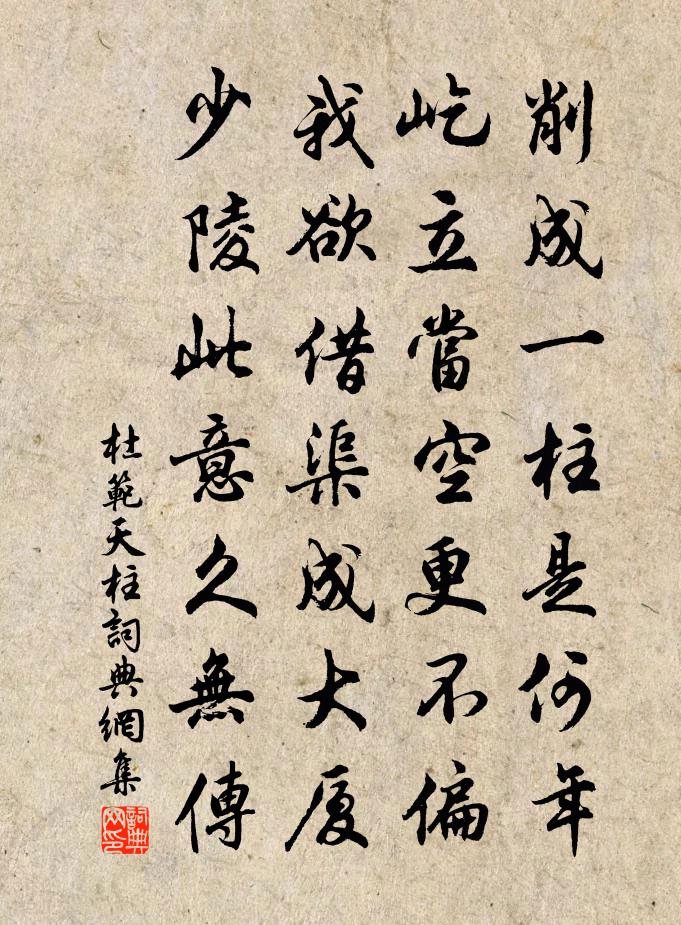 削成一柱是何年
屹立當空更不偏
我欲借渠成大厦
少陵此意久無傳
杜範天柱詞典網集
詞典网印